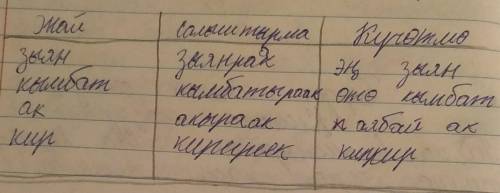 Жай салыштырма Күчөтмө
зыян зыянрак эң зыян
кымбат кымбатыраак өтө кымбат
ак агыраак аябай ак
кир киргирээк кипкир